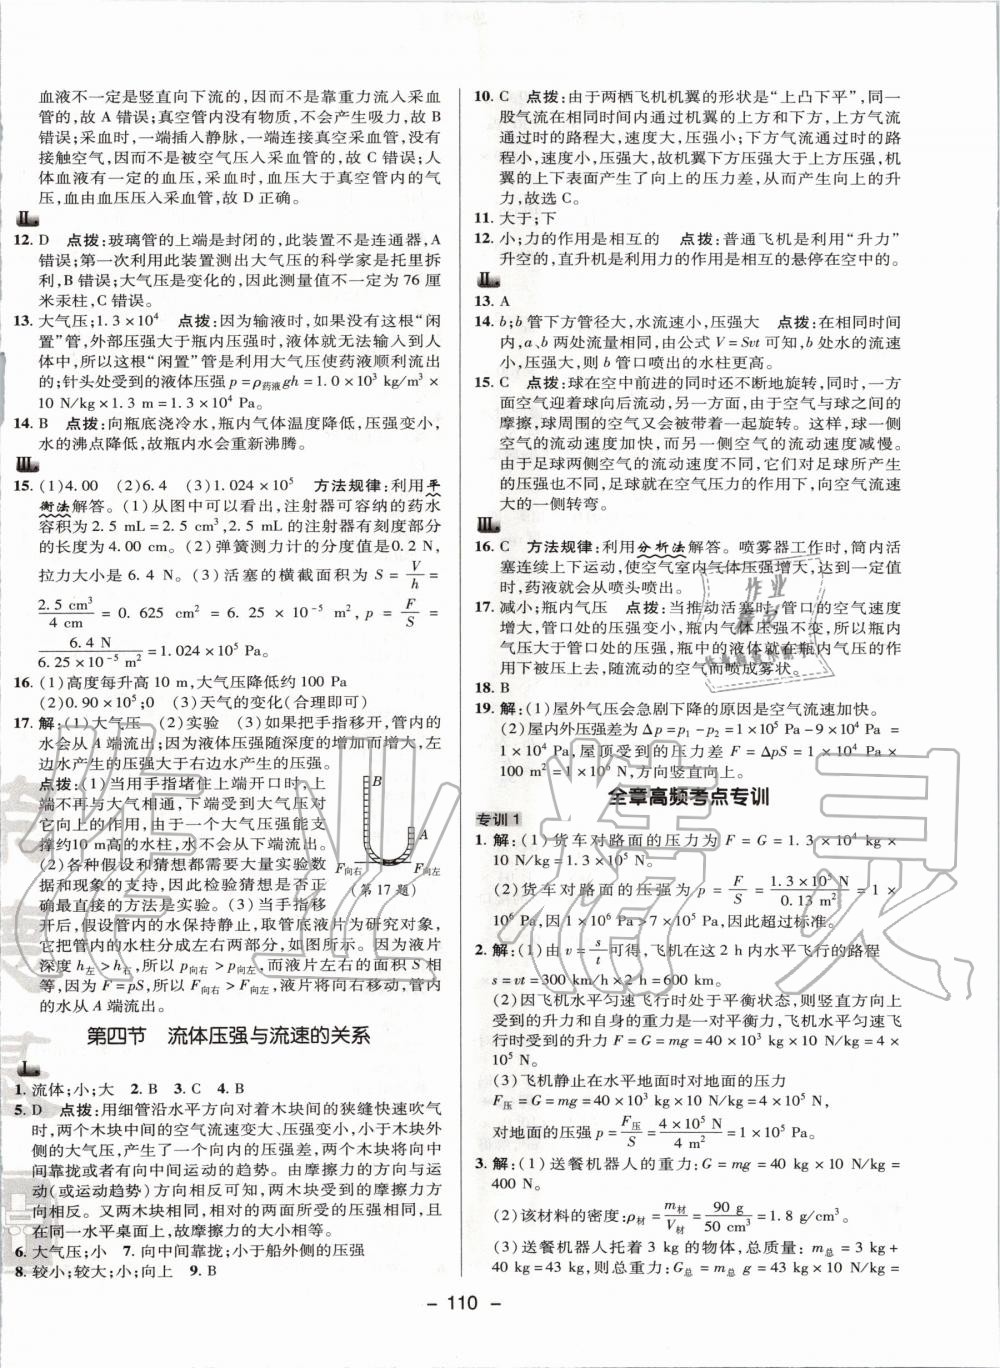 血液不一定是竖直向下流的,因而不是靠重力流入采血
管的,故 A 错误;真空管内没有物质,不会产生吸力,故
B 错误;采血时,一端插入静脉,一端连接真空采血管,没有
接触空气,因而不是被空气压入采血管的,故 C 错误;
人体血液有一定的血压,采血时,血压大于真空管内的气
压,血由血压压入采血管,故 D 正确。
Ⅱ.
12. D 点拨:玻璃管的上端是封闭的,此装置不是连通器,A
错误;第一次利用此装置测出大气压的科学家是托里拆
利,B 错误;大气压是变化的,因此测量值不一定为 76 厘
米汞柱,C 错误。
13. 大气压;1.3×10⁴ 点拨:因为输液时,如果没有这根“闲
置”管,外部压强大于瓶内压强时,液体就无法输入到人
体中,所以这根“闲置”管是利用大气压使药液顺利流出
的;针头处受到的液体压强 p=ρ药液gh=1.0×10³ kg/m³×
10 N/kg×1.3 m=1.3×10⁴ Pa。
14. B 点拨:向瓶底浇冷水,瓶内气体温度降低,压强变小,
水的沸点降低,故瓶内水会重新沸腾。
Ⅲ.
15. (1)4.00 (2)6.4 (3)1.024×10⁵ 方法规律:利用平
衡法解答。(1)从图中可以看出,注射器可容纳的药水
容积为 2.5 mL=2.5 cm³,2.5 mL的注射器有刻度部分
的长度为 4.00 cm。(2)弹簧测力计的分度值是0.2 N,
拉力大小是 6.4 N。(3)活塞的横截面积为 S=V/h=
2.5 cm³/4 cm = 0.625 cm² = 6.25×10⁻⁵ m², p=F/S=
6.4 N/6.25×10⁻⁵ m²=1.024×10⁵ Pa。
16. (1)高度每升高 10 m,大气压降低约 100 Pa
(2)0.90×10⁵;0 (3)天气的变化(合理即可)
17. 解:(1)大气压 (2)实验 (3)如果把手指移开,管内的
水会从 A 端流出;因为液体压强随深度的增加而增大,
左边水产生的压强大于右边水产生的压强。
点拨:(1)当用手指堵住上端开口时,下
端却与大气相通,下端受到大气压对
它向上的作用,由一个大气压强能支
撑约10 m高的水柱,故水不会流出。
(2)各种假设和猜想都需要大量的数
据和现象的支持,因此检验猜想是否正
确最直接的方法是实验。(3)移开手指
后,假设管内的水保持静止,取管底液片为研究对象,
它把管内的水柱分成左右两部分,如图所示。因为液片
深度 h左>h右,所以 p向右>p向左。而液片左右的面积 S 相
等,因为 F=pS,所以 F向右>F向左,液片将向右移动,管内
的水从 A 端流出。
B
A
F向右 F向左
(第 17 题)
第四节 流体压强与流速的关系
Ⅰ.
1. 流体;小;大 2. B 3. C 4. B
5. D 点拨:用细管沿水平方向对着木块间的狭缝快速吹气
时,两个木块中间的空气流速变大、压强变小,小于木块外
侧的大气压,产生了一个向内的压强差,两个木块向中
间靠拢或者有向中间运动的趋势。由摩擦力的方向与运
动(或运动趋势)方向相反可知,两木块受到的摩擦力方
向相反。又两木块大小相同,相对的两面所受的压强相同,且
在同一水平桌面上,故摩擦力的大小相等。
6. 大气压;小 7. 向中间靠拢;小于船外侧的压强
8. 较小;较大;小;向上 9. B
10. C 点拨:由于两栖飞机机翼的形状是“上凸下平”,同一
股气流在相同时间内通过机翼的上方和下方,上方气流
通过时的路程大,速度大,压强小;下方气流通过时的路
程小,速度小,压强大,故机翼下方压强大于上方压强,机
翼的上下表面产生了向上的压力差,从而产生向上的升
力,故选 C。
11. 大于;下
12. 小;力的作用是相互的 点拨:普通飞机是利用“升力”
升空的,直升机是利用力的作用是相互的悬停在空中的。
Ⅱ.
13. A
14. b;b 管下方管径大,水流速小,压强大 点拨:在相同时间
内,a、b 两处流量相同,由公式 V=Svt 可知,b 处水的流速
小,压强大,则 b 管喷出的水柱更高。
15. C 点拨:球在空中前进的同时还不断地旋转,一方
面空气迎着球向后流动,另一方面,由于空气与球之间的
摩擦,球周围的空气又会被带着一起旋转。这样,球一侧
空气的流动速度加快,而另一侧空气的流动速度减慢。
由于足球两侧空气的流动速度不同,它们对足球所产生
的压强也不同,足球就在空气压力的作用下,向空气流速
大的一侧转弯。
Ⅲ.
16. C 方法规律:利用分析法解答。喷雾器工作时,筒内活
塞连续上下运动,使空气室内气体压强增大,达到一定程
度时,药液就会从喷头喷出。
17. 减小;瓶内气压 点拨:当推动活塞时,管口的空气速度
增大,管口处的压强变小,瓶内气体压强不变,所以瓶内
气压大于管口处的压强,瓶中的液体就在瓶内气压的作
用下被压上去,随流动的空气而喷成雾状。
18. B
19. 解:(1)屋外气压会急剧下降的原因是空气流速加快。
(2)屋内外压强差为 Δp=p₁-p₂=1×10⁵ Pa-9×10⁴ Pa=
1×10⁴ Pa,屋顶受到的压力差 F=ΔpS=1×10⁴ Pa×
100 m²=1×10⁶ N,方向竖直向上。
全章高频考点专训
专训 1
1. 解:(1)货车对路面的压力为 F=G=1.3×10⁴ kg×
10 N/kg=1.3×10⁵ N。
(2)货车对路面的压强为 p=F/S=1.3×10⁵ N/0.13 m²=1×
10⁶ Pa,因 1×10⁶ Pa>7×10⁵ Pa,因此超过标准。
2. 解:(1)由 v=s/t可得,飞机在这 2 h 内水平飞行的路程
s=vt=300 km/h×2 h=600 km。
(2)因飞机水平匀速飞行时处于平衡状态,则竖直方向上
受到的升力和自身的重力是一对平衡力,飞机水平匀速飞
行时受到的升力 F=G=mg=4×10⁴ kg×10 N/kg=4×
10⁵ N。
(3)飞机静止在水平地面时对地面的压力
F压=G=mg=4×10⁴ kg×10 N/kg=4×10⁵ N,
对地面的压强 p=F压/S=4×10⁵ N/4 m²=1×10⁵ Pa。
3. 解:(1)送餐机器人的重力:G=mg=40 kg×10 N/kg=
400 N。
(2)该材料的密度:ρ材=m材/V材=90 g/50 cm³=1.8 g/cm³。
(3)送餐机器人托着 3 kg 的物体,总质量:m总=3 kg+
40 kg=43 kg,总重力:G总=m总g=43 kg×10 N/kg=
- 110 -